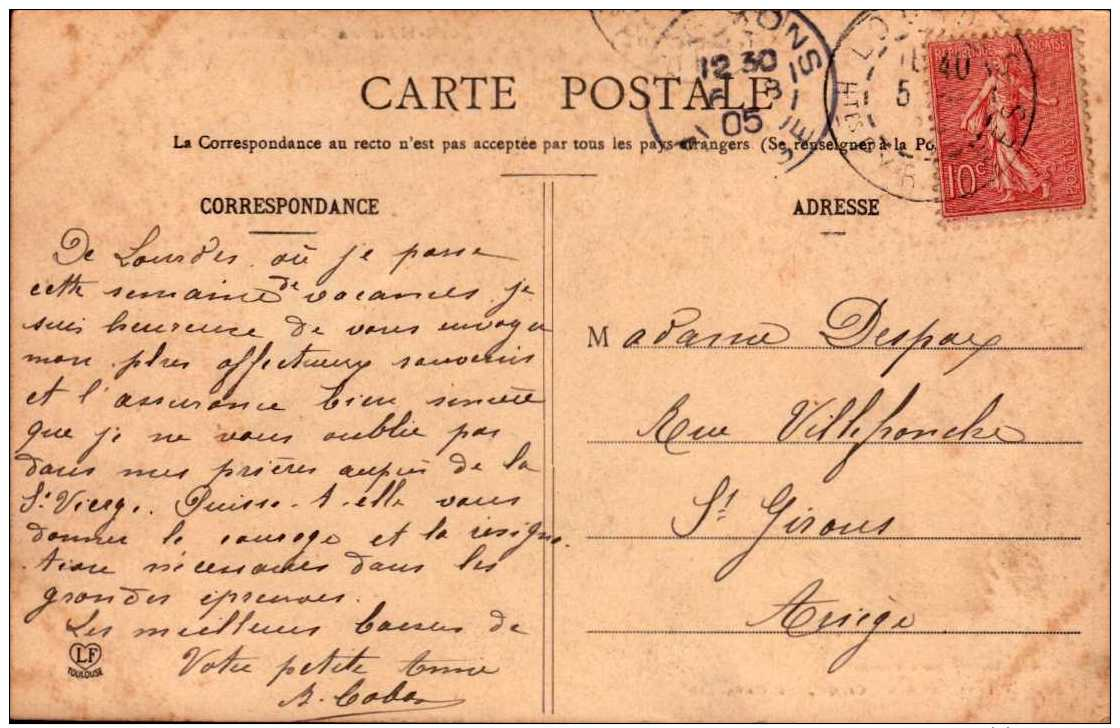 CARTE POSTALE
La Correspondance au recto n'est pas acceptée par tous les pays étrangers (Se renseigner à la Po
CORRESPONDANCE
De Lourdes où je passe
cette semaine de vacances je
suis heureuse de vous envoyer
mon plus affectueux souvenir
et l'assurance bien sincère
que je ne vous oublie pas
dans mes prières auprès de la
St Vierge. Puisse-t-elle vous
donner le courage et la résigna
tion nécessaires dans les
grandes épreuves.
Les meilleurs baisers de
Votre petite
LF
TOULOUSE
ADRESSE
Madame Despax
Rue Villefranche
St Girons
Ariège
12 30
6 8
05
REPUBLIQUE FRANÇAISE
10c
POSTES
40
5